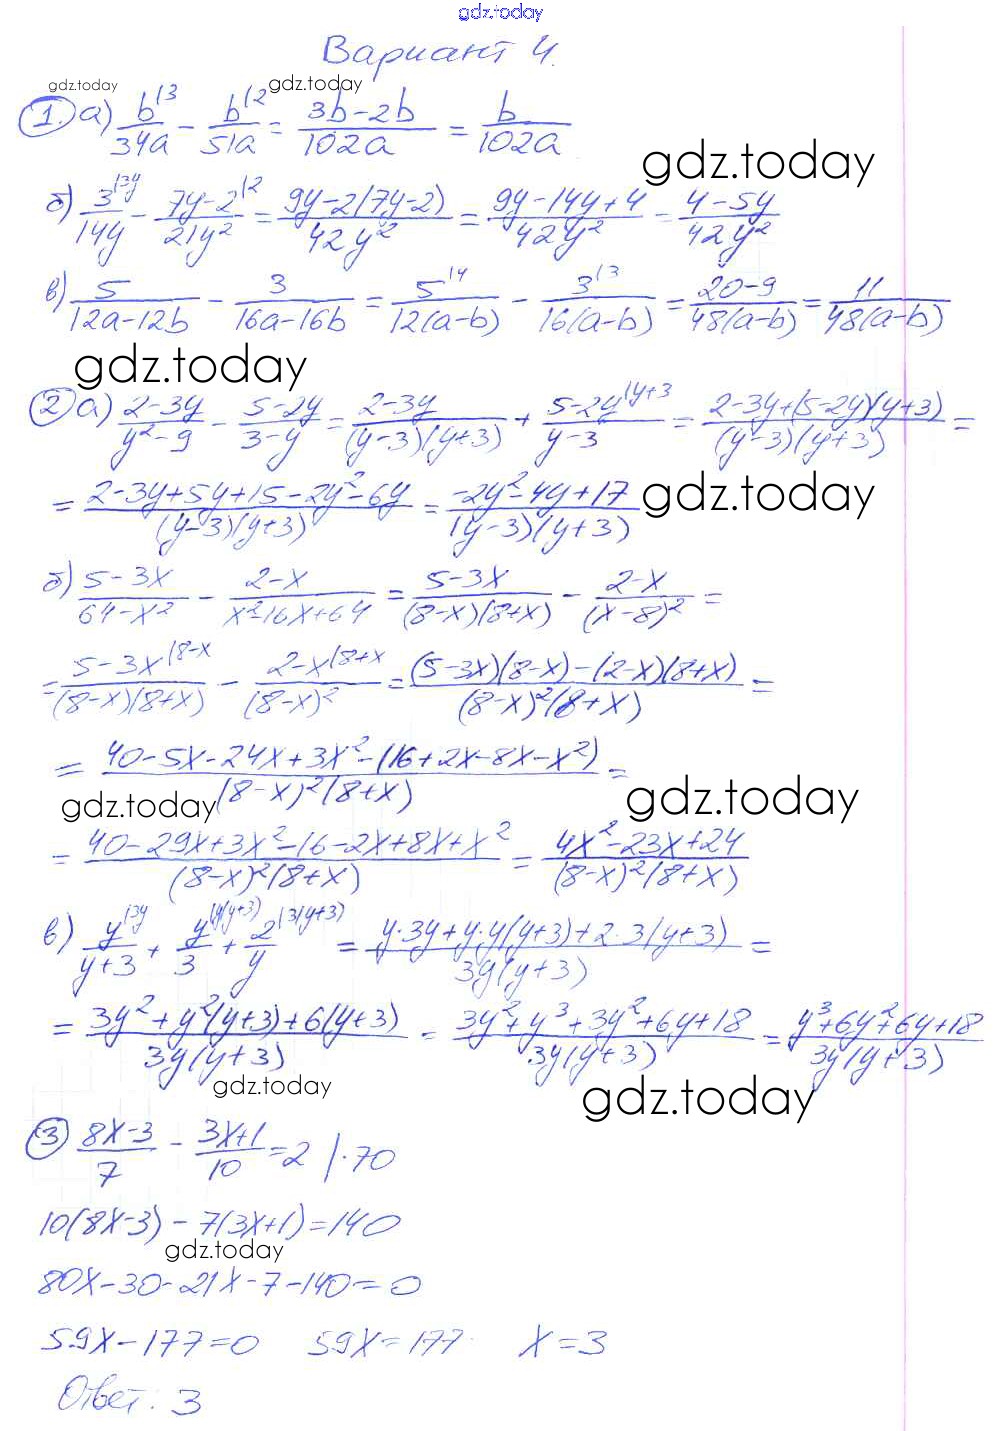 gdz.today
Вариант 4.
gdz.today gdz.today
1. а) b|3/34a − b|2/51a = 3b−2b/102a = b/102a
gdz.today
б) 3|3y/14y − 7y−2|2/21y² = 9y−2(7y−2)/42y² = 9y−14y+4/42y² = 4−5y/42y²
в) 5/12a−12b − 3/16a−16b = 5|4/12(a−b) − 3|3/16(a−b) = 20−9/48(a−b) = 11/48(a−b)
gdz.today
2 а) 2−3y/y²−9 − 5−2y/3−y = 2−3y/(y−3)(y+3) + 5−2y|y+3/y−3 = 2−3y+(5−2y)(y+3)/(y−3)(y+3) =
= 2−3y+5y+15−2y²−6y/(y−3)(y+3) = −2y²−4y+17/(y−3)(y+3)
gdz.today
б) 5−3x/64−x² − 2−x/x²−16x+64 = 5−3x/(8−x)(8+x) − 2−x/(x−8)² =
= 5−3x|8−x/(8−x)(8+x) − 2−x|8+x/(8−x)² = (5−3x)(8−x)−(2−x)(8+x)/(8−x)²(8+x) =
= 40−5x−24x+3x²−(16+2x−8x−x²)/(8−x)²(8+x) =
gdz.today gdz.today
= 40−29x+3x²−16−2x+8x+x²/(8−x)²(8+x) = 4x²−23x+24/(8−x)²(8+x)
в) y|3y/y+3 + y|y(y+3)/3 + 2|3(y+3)/y = y·3y+y·y(y+3)+2·3(y+3)/3y(y+3) =
= 3y²+y²(y+3)+6(y+3)/3y(y+3) = 3y²+y³+3y²+6y+18/3y(y+3) = y³+6y²+6y+18/3y(y+3)
gdz.today gdz.today
3 8x−3/7 − 3x+1/10 = 2 |·70
10(8x−3) − 7(3x+1) = 140
gdz.today
80x−30−21x−7−140=0
59x−177=0 59x=177 x=3
Ответ: 3